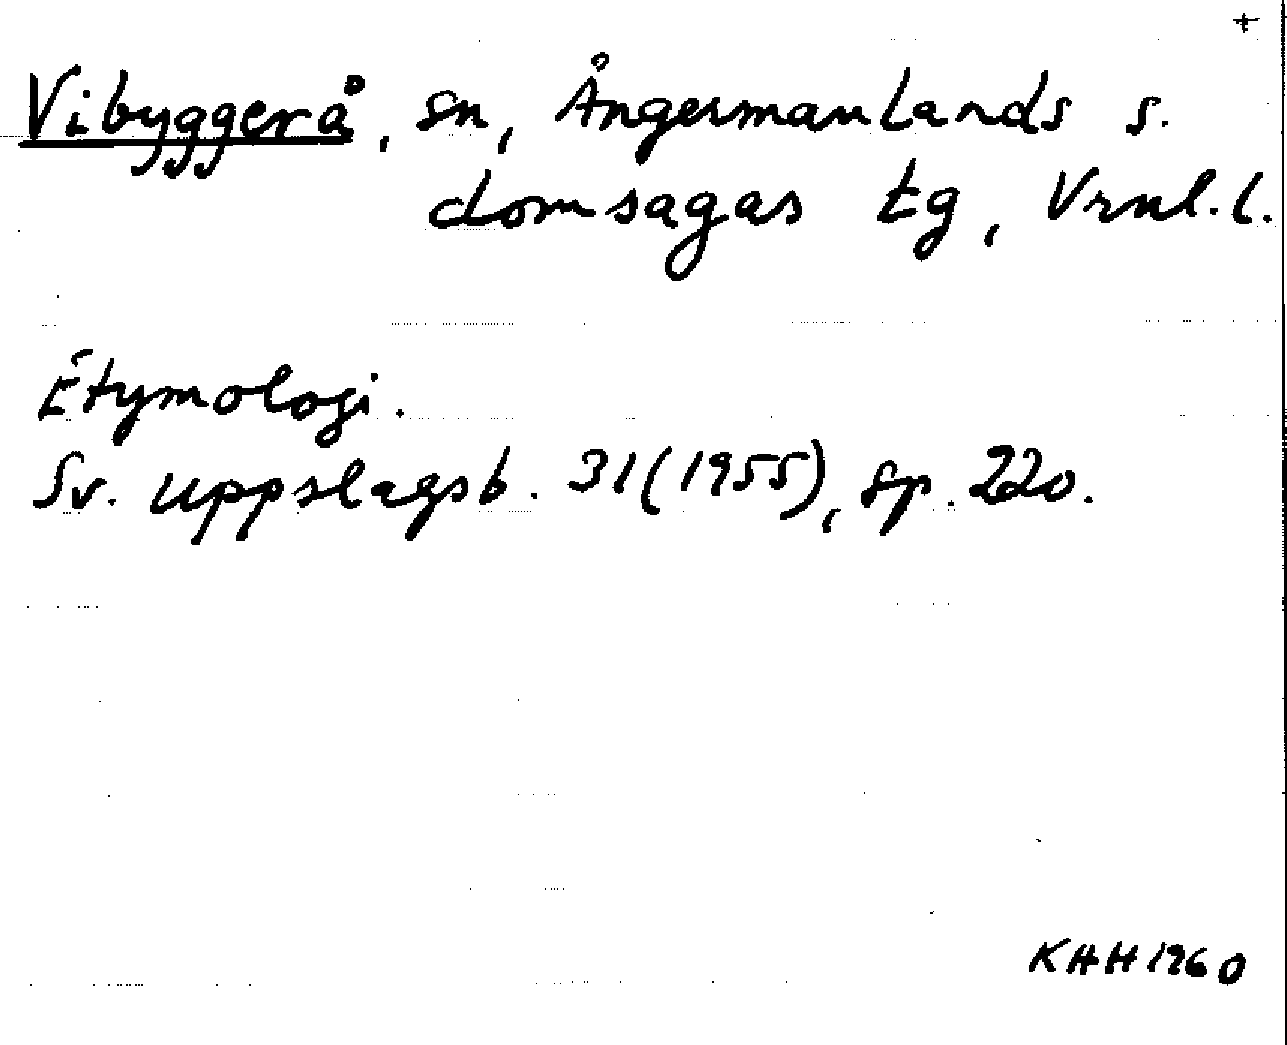 +
Vibyggerå, sn, Ångermanlands s.
domsagas tg, Vrnl. l.
Etymologi.
Sv. uppslagsb. 31 (1955), sp. 220.
KHH 1960